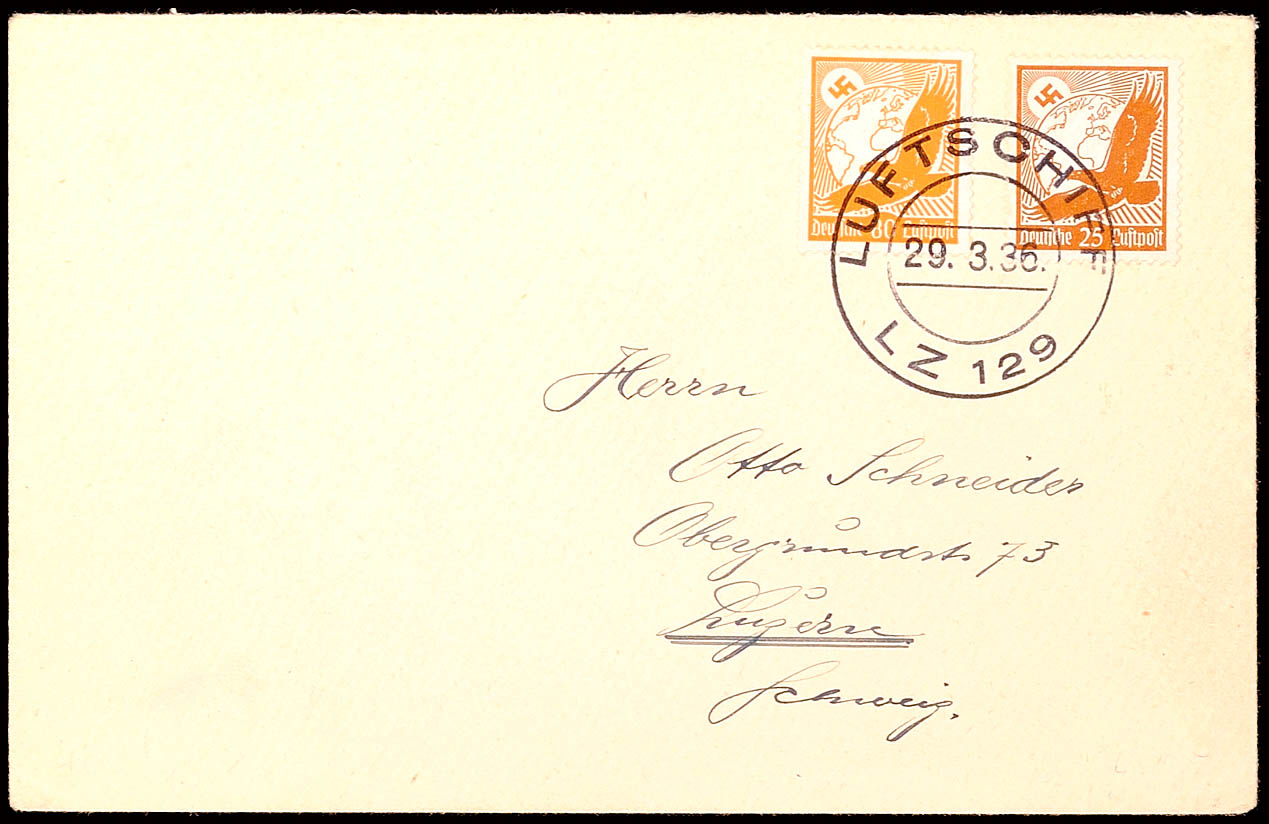 Deutsche 80 Luftpost
Deutsche 25 Luftpost
LUFTSCHIFF
29. 3.36.
LZ 129
Herrn
Otto Schneider
Obergrundstr 73
Luzern
Schweiz.